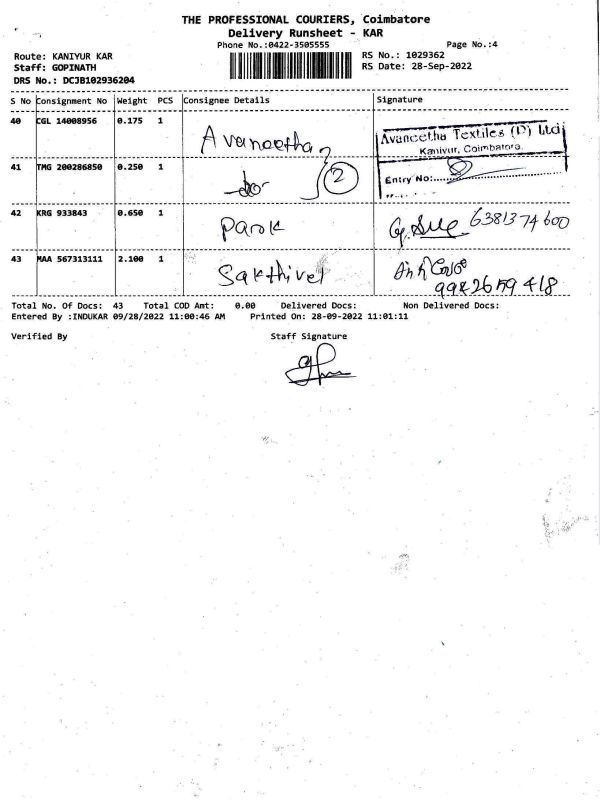 THE PROFESSIONAL COURIERS, Coimbatore
Delivery Runsheet - KAR
Phone No.:0422-3505555 Page No.:4
Route: KANIYUR KAR RS No.: 1029362
Staff: GOPINATH RS Date: 28-Sep-2022
DRS No.: DCJB102936204
S No Consignment No Weight PCS Consignee Details Signature
40 CGL 14008956 0.175 1 Avaneetha Avaneetha Textiles (P) Ltd
Kaniyur, Coimbatore.
41 TMG 200286850 0.250 1 -do- 2 Entry No:
42 KRG 933843 0.650 1 Park 6381374600
43 MAA 567313111 2.100 1 Sakthivel
Total No. Of Docs: 43 Total COD Amt: 0.00 Delivered Docs: Non Delivered Docs:
Entered By :INDUKAR 09/28/2022 11:00:46 AM Printed On: 28-09-2022 11:01:11
Verified By Staff Signature